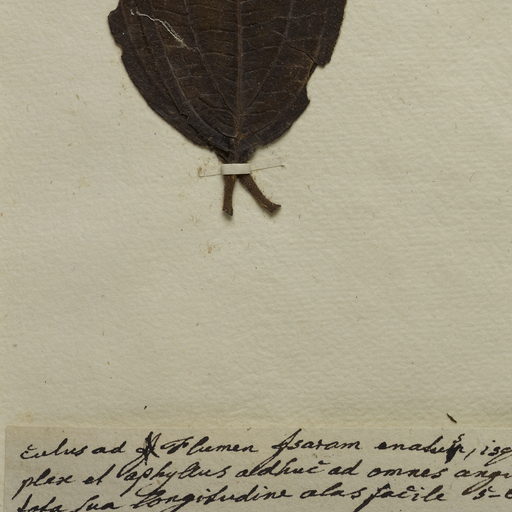 culus ad Flumen Isaram enatus, isq
plex et aphyllus adhuc ad omnes angu
tota sua longitudine alas facile 5-6